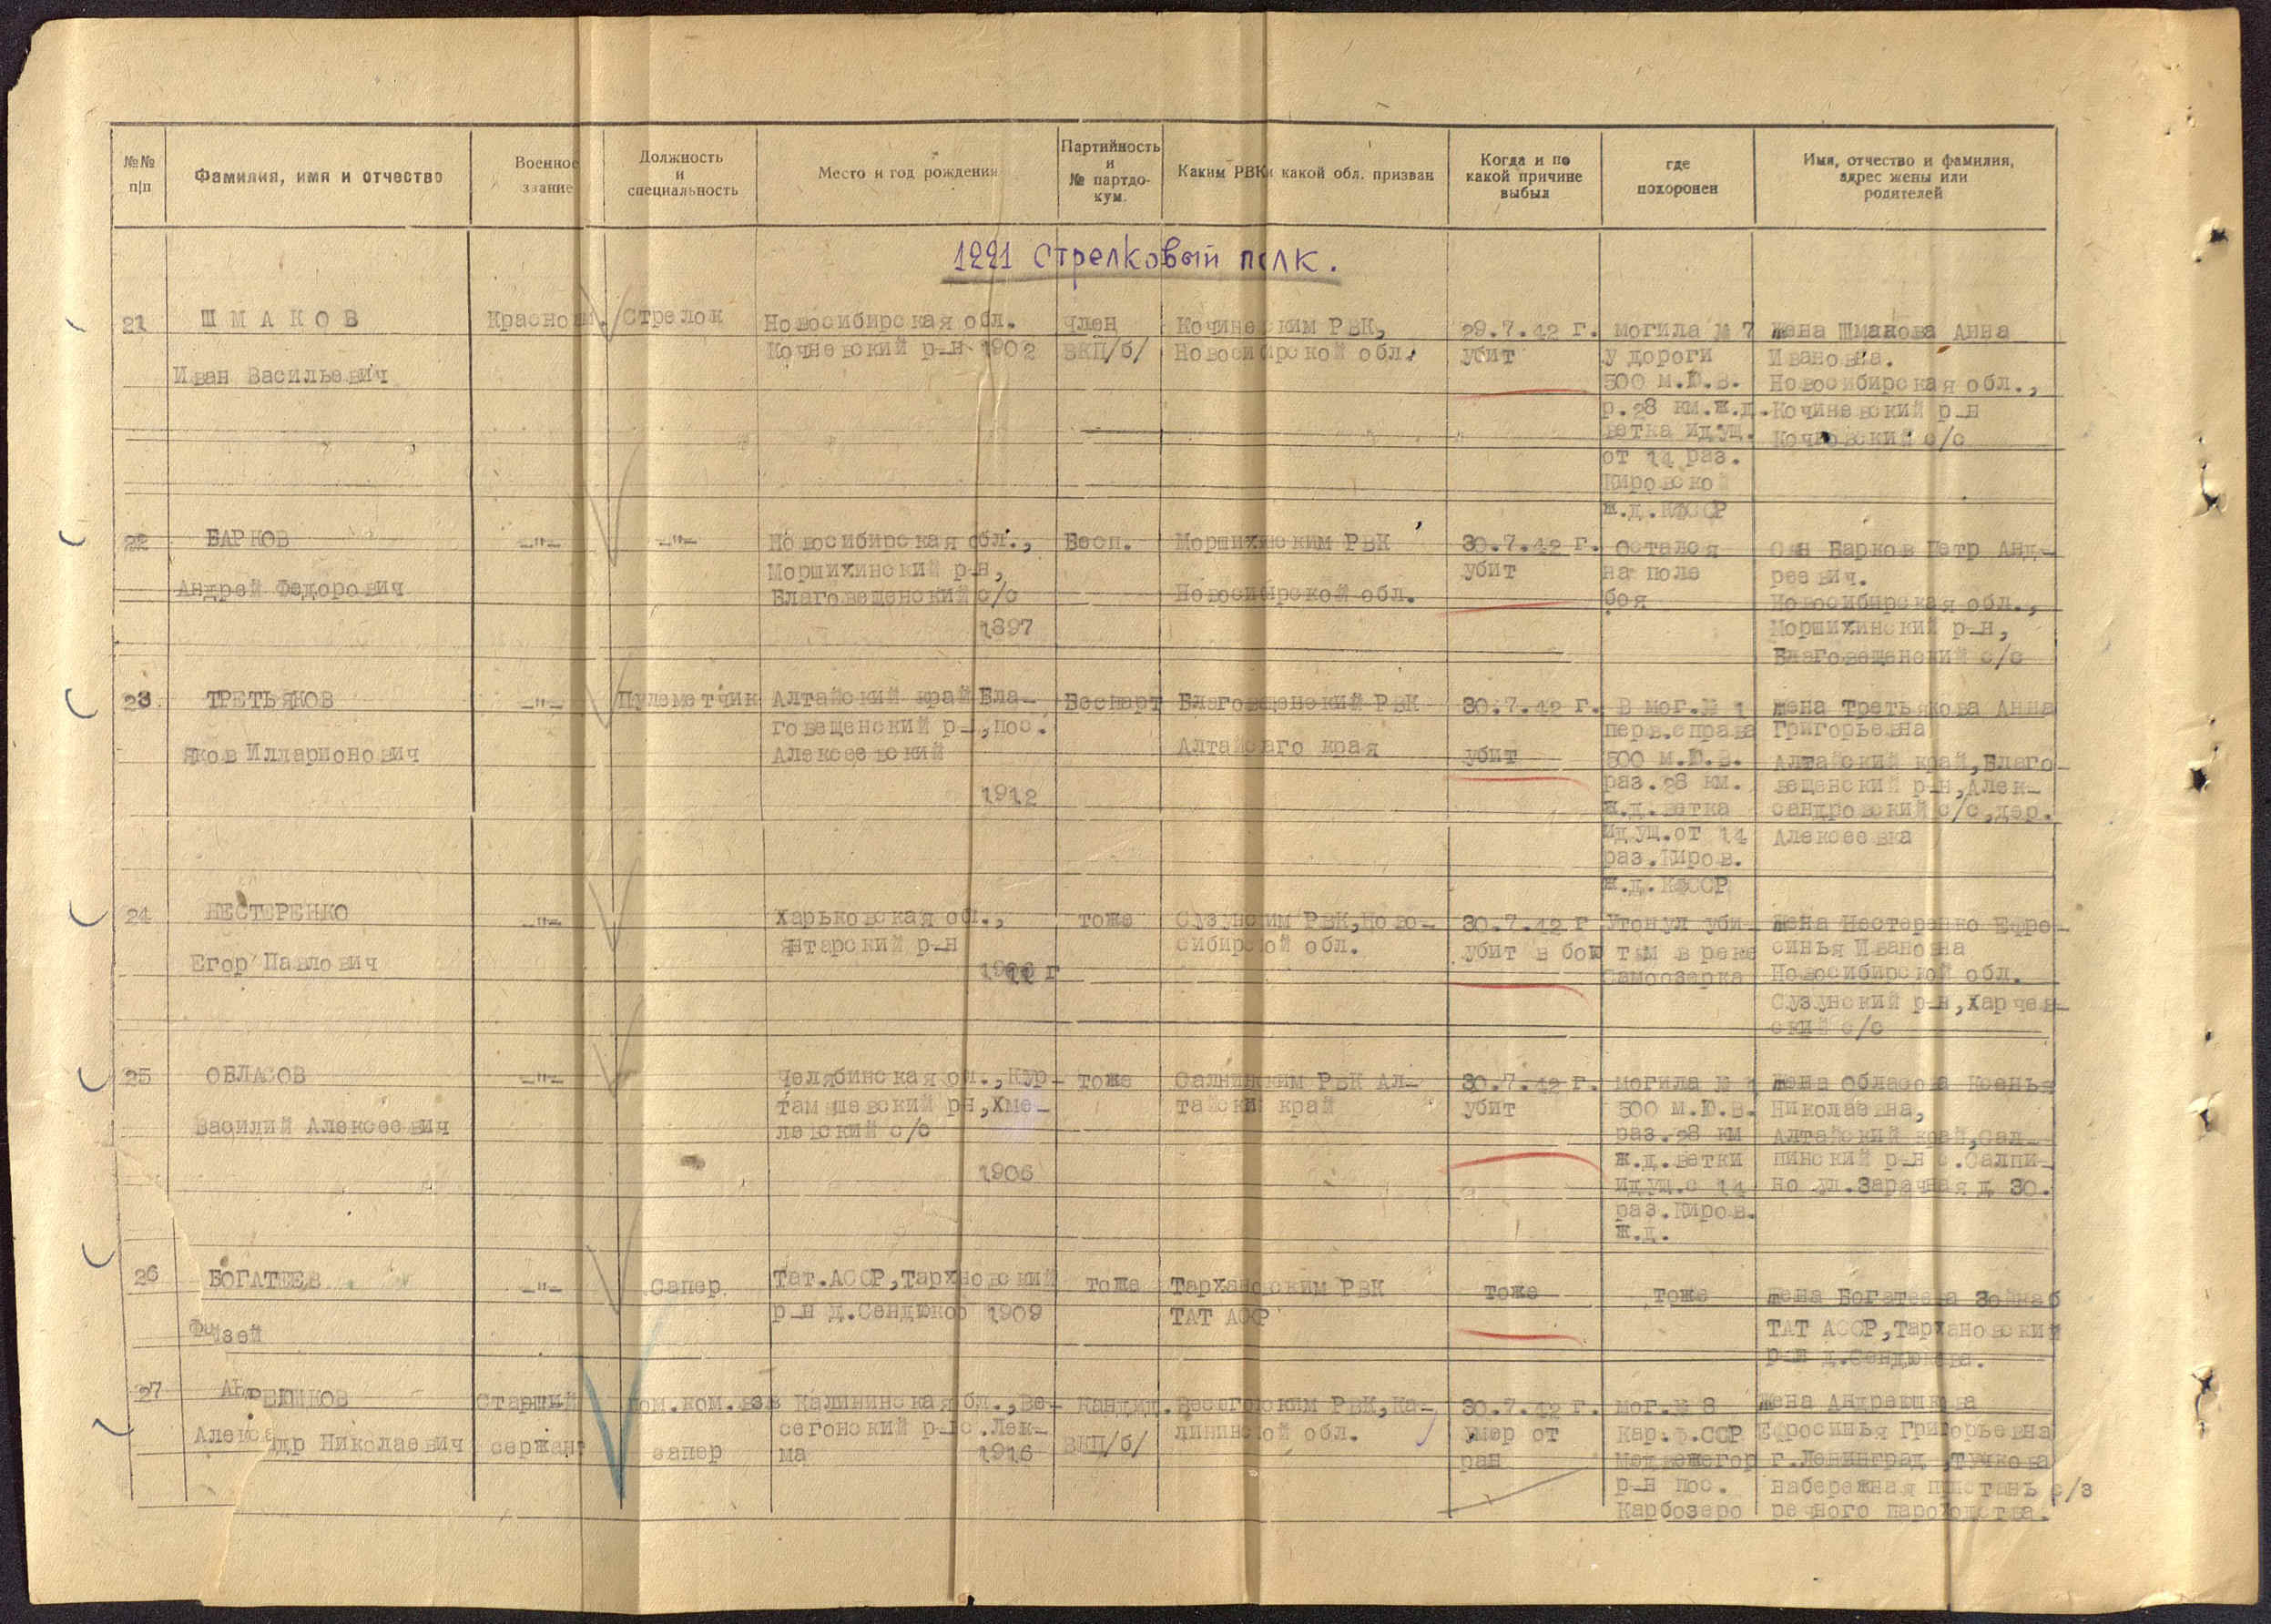 №№ п|п
Фамилия, имя и отчество
Военное звание
Должность и специальность
Место и год рождения
Партийность и № партдокум.
Каким РВК и какой обл. призван
Когда и по какой причине выбыл
где похоронен
Имя, отчество и фамилия, адрес жены или родителей
1221 Стрелковый полк.
21
ШМАКОВ
Иван Васильевич
Краснои.
Стрелок
Новосибирская обл.
Кочневский р-н 1902
член
ВКП/б/
Кочиневским РВК,
Новосибирской обл.
29.7.42 г.
убит
могила № 7
у дороги
500 м.Ю.В.
р.28 км.ж.д.
ветка идущ.
от 14 раз.
Кировской
ж.д.КФССР
жена Шмакова Анна
Ивановна.
Новосибирская обл.,
Кочиневский р-н
Кочковский с/с
22
БАРКОВ
Андрей Федорович
-"-
-"-
Новосибирская обл.,
Моршихинский р-н,
Благовещенский с/с
1897
Бесп.
Моршихинским РВК
Новосибирской обл.
30.7.42 г.
убит
Остался
на поле
боя
Сын Барков Петр Анд-
реевич.
Новосибирская обл.,
Моршихинский р-н,
Благовещенский с/с
23
ТРЕТЬЯКОВ
Яков Илларионович
-"-
Пулеметчик
Алтайский край Бла-
говещенский р-,пос.
Алексеевский
1912
Беспарт
Благовещенский РВК
Алтайского края
30.7.42 г.
убит
В мог.№ 1
перв.справа
500 м.Ю.В.
раз.28 км.
ж.д.ветка
идущ.от 14
раз.Киров.
ж.д.КФССР
жена Третьякова Анна
Григорьевна
Алтайский край,Благо-
вещенский р-н,Алек-
сандровский с/с,дер.
Алексеевка
24
НЕСТЕРЕНКО
Егор Павлович
-"-
Харьковская обл.,
янтарский р-н
тоже
Сузунским РВК,Ново-
сибирской обл.
30.7.42 г
убит в бою
Утонул уби-
тым в реке
Самоозерка
жена Нестеренко Ефро-
синья Ивановна
Новосибирской обл.
Сузунский р-н,Харчен-
ский с/с
25
ОБЛАСОВ
Василий Алексеевич
-"-
Челябинская об.,Кур-
тамышевский рн,Хме-
левский с/с
1906
тоже
Салнинским РВК Ал-
тайский край
30.7.42 г.
убит
могила № 1
500 м.Ю.В.
раз.28 км
ж.д.ветки
идущ.с 14
раз.Киров.
ж.д.
жена Обласова Ксенья
Николаевна,
Алтайский край,Сал-
пинский р-н с.Салпи-
но ул.Заречная д 30.
26
БОГАТЕЕВ
-"-
Сапер
Тат.АССР,Тархановский
р-н д.Сендюково 1909
тоже
Тархановским РВК
ТАТ АССР
тоже
тоже
жена Богатеева Зейнаб
ТАТ АССР,Тархановский
р-н д.Сендюкова.
27
АНДРЕЮШКОВ
Александр Николаевич
Старший
сержант
пом.ком.взв
сапер
Калининская обл.,Ве-
сегонский р-н с.Лек-
ма 1916
Кандид.
ВКП/б/
Весегонским РВК,Ка-
лининской обл.
30.7.42 г.
умер от
ран
мог.№ 8
Кар.ф.ССР
Медвежегор
р-н пос.
Карбозеро
жена Андреюшкова
Ефросинья Григорьевна
г.Ленинград ,Тучкова
набережная пристань с/з
речного пароходства.